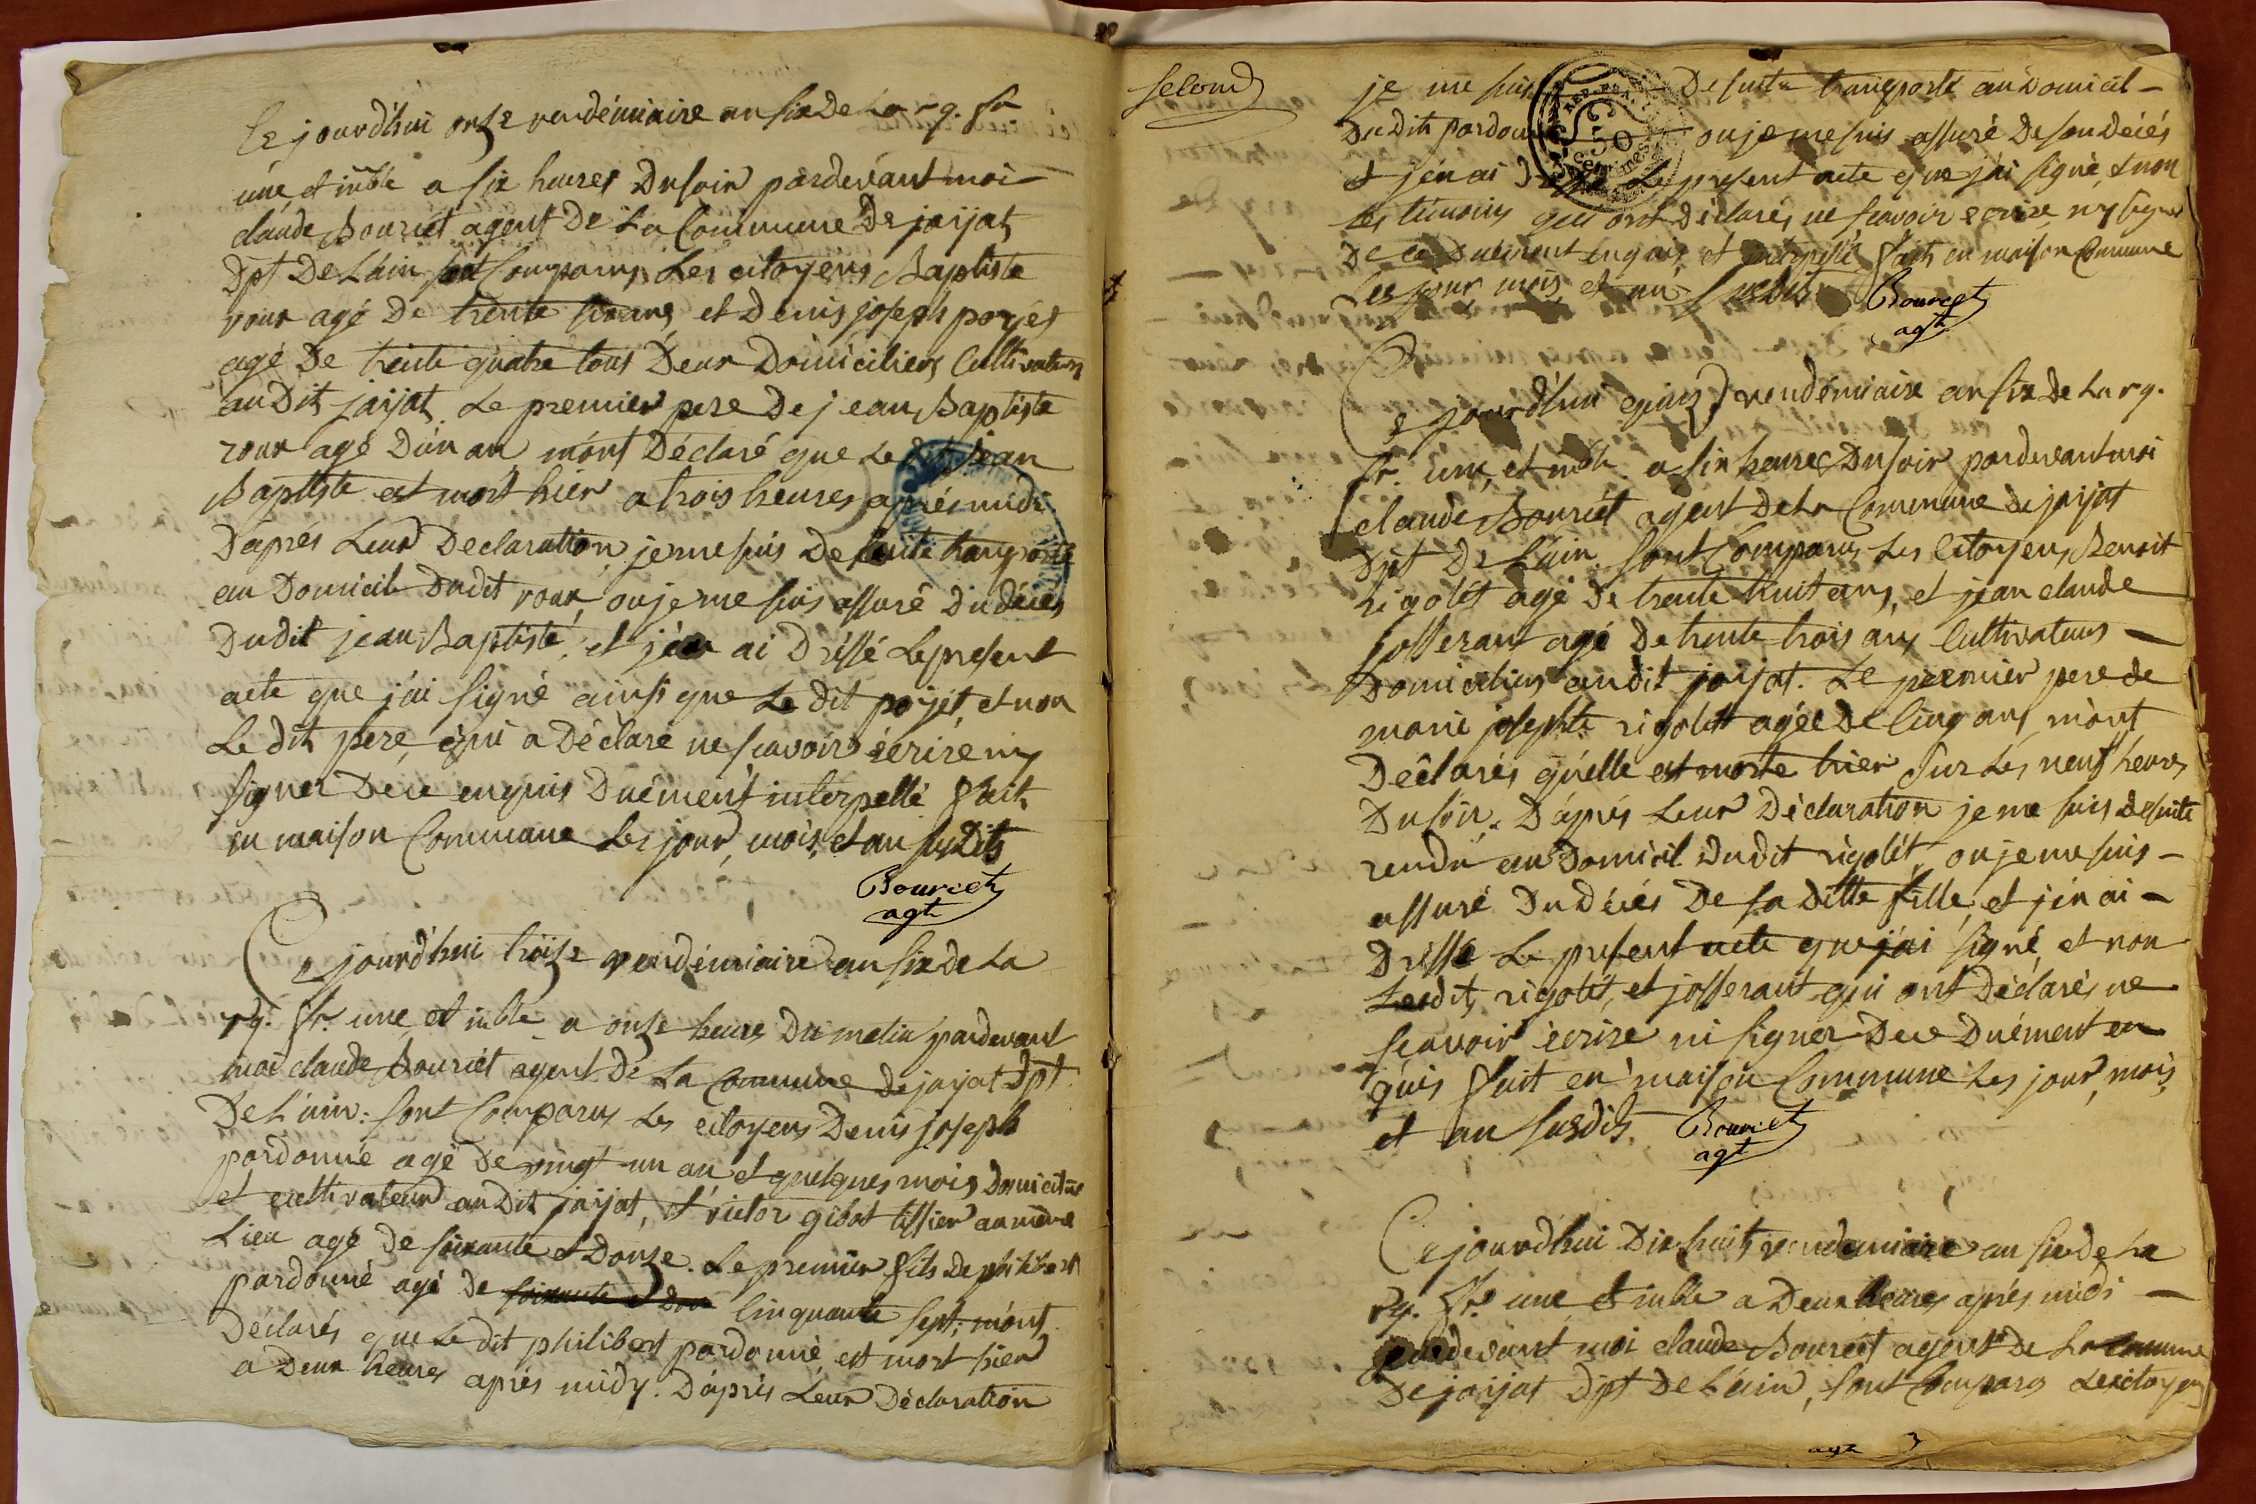 Ce jourd'hui onze vendémiaire an six de La rq. fr.
une, et indble a six heures Du soir pardevant moi
claude Bourcet agent De La Commune De jayat
Dpt De L'ain sont Comparus Les citoyens Baptiste
roux agé De trente six ans, et Denis joseph poyet
agé De trente quatre tous Deux Domiciliers Cultivateurs
au Dit jayat Le premier pere De jean Baptiste
roux agé D'un an m'ont Déclaré que Le dt jean
Baptiste est mort hier a trois heures aprés midi
D'aprés Leur Declaration, je me suis De suite transporté
au Domicile Dudit roux, ou je me suis assuré Du décés
Dudit jean Baptiste, et j'en ai Dréssé Le present
acte que j'ai signé ainsi que Le dit poyet, et non
Le dit pere, qui a Déclaré ne scavoir écrire ny
signer De ce enquis Duêment interpellé fait
en maison Commune Les jour, mois, et an susDits
Bourcet
agt
Ce jourd'hui treize vendémiaire an six de La
rq. fr. une, et indble a onze heures Du matin pardevant
moi claude Bourcet agent De La Commune de jayat Dpt
De L'ain. sont Comparus Les citoyens Denis joseph
pardonné agé De vingt un an et quelques mois Domicilié
et cultivateur au Dit jayat, et victor gibot tissier au même
Lieu agé De soixante et Douze. Le premier fils De philibert
pardonné agé De soixante et Douz Cinquante sept, m'ont
Déclarés que Le dit philibert pardonné, est mort hier
a Deux heures aprés midy. D'aprés Leur Déclaration
second
je me suis De suite transporté au Domicil
Du dit pardonné ou je me suis assuré De son décés
et j'en ai Le present acte que j'ai signé, et non
Les témoins qui ont Déclarés ne scavoir écrire, ny signer
De ce Duêment enquis, et interpellé fait en maison Commune
Les jour, mois, et an susdits
Bourcet
agt
REP. FRA.
50
CENTIMES
Ce jourd'hui quinze vendémiaire an six De La rq.
fr. une, et indble a six heures Du soir pardevant moi
claude Bourcet agent De La Commune de jayat
Dpt De L'ain. sont Comparus Les Citoyens Benoit
rigolét agé De trente huit ans, et jean claude
josserant agé De trente trois ans Cultivateurs
Domiciliers audit jayat. Le premier pere de
marie josephte rigolett agée De Cinq ans, m'ont
Déclarés qu'elle est morte hier sur Les neuf heures
Du soir. D'aprés Leur Déclaration je me suis de suite
rendu au Domicil Dudit rigolét, ou je me suis
assuré Du décés De sa ditte fille, et j'en ai
Dressé Le present acte que j'ai signé, et non
Lesdits rigolét, et josserant qui ont Déclarés ne
scavoir écrire ni signer De ce Duêment en
quis fait en maison Commune Les jour, mois,
et an susdits.
Bourcet
agt
Ce jourd'hui Dix huit, vendemiaire an six de La
rq. fr. une et indble a Deux heures aprés midi
pardevant moi claude Bourcet agent De La Commune
De jayat Dpt De L'ain, sont Comparus Les citoyens
agt